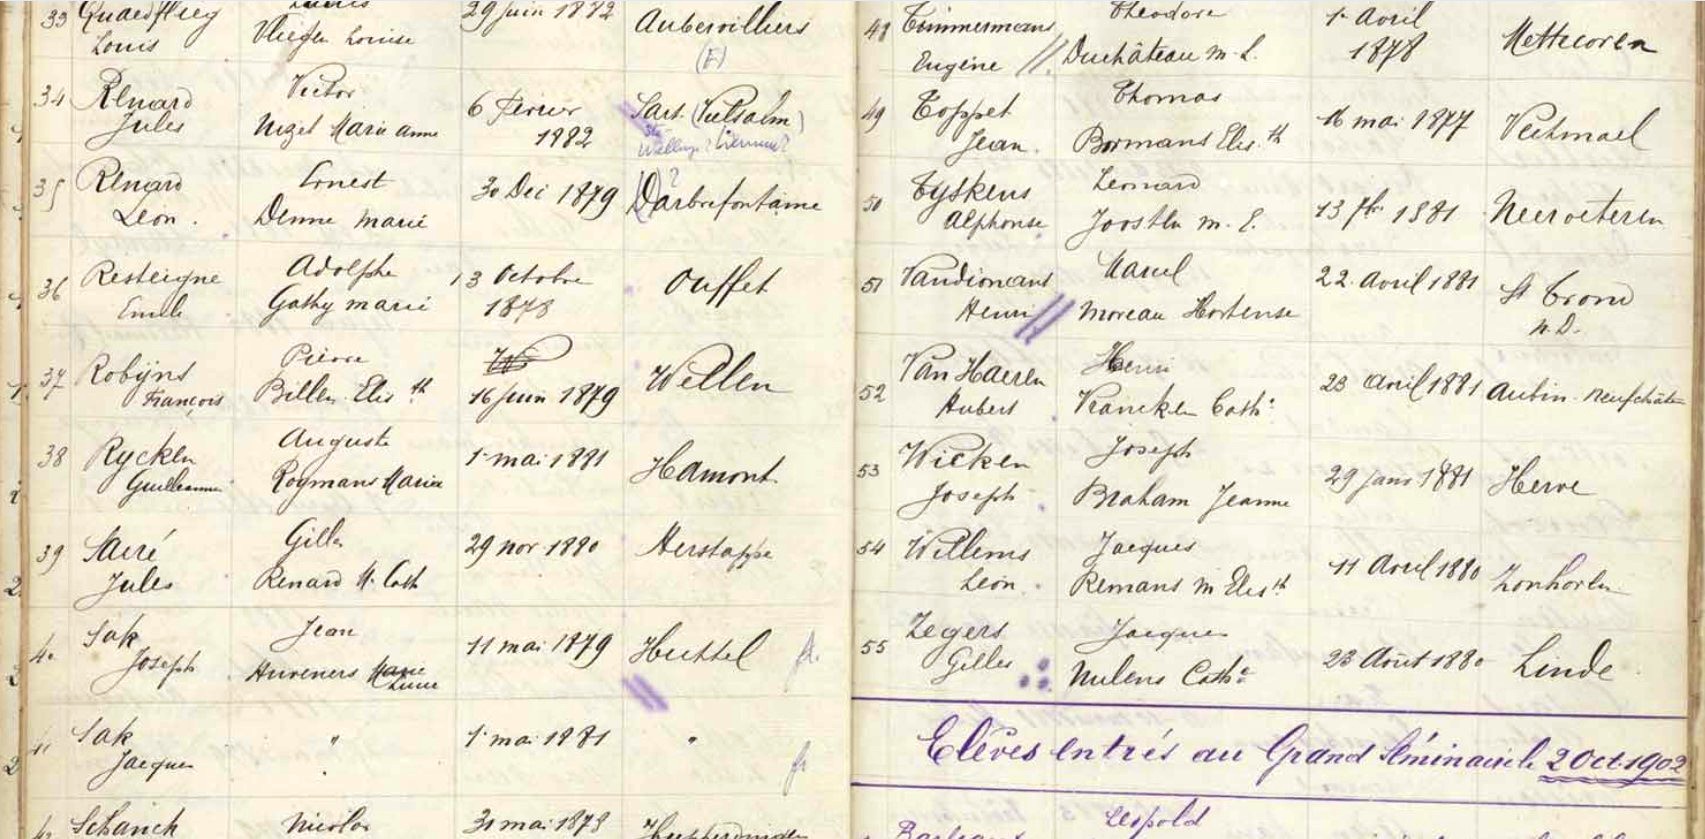 33 Quaedflieg 29 Juin 1882 Aubervilliers
Louis Vliegen Louise (E)
34 Renard Victor 6 Fevrier Sart (Vielsalm)
Jules Nizet Marie Anne 1882
35 Renard Ernest 30 Dec 1879 (?) Darbrefontaine
Léon. Denne Marie
36 Resteigne Adolphe 13 Octobre Ouffet
Emile Gathy Marie 1878
37 Robijns Pierre Wellen
François Billen Elis.th 16 Juin 1879
38 Rycken Auguste 1 mai 1881 Hamont
Guillaume Rogmans Maria
39 Sacré Gilles 29 nov 1880 Herstappe
Jules Renard M. Cath
40 Sak Jean 11 mai 1879
Joseph Marie
41 Sak " 1 mai 1881 "
Jacques
42 Schanck Nicolas 31 mai 1878
48 Timmermans Théodore 1 Avril
Eugène Duchâteau M. L. 1878
49 Toppet Thomas 16 mai 1877
Jean. Bormans Elis.th
50 Tyskens Leonard 13 1881 Neeroeteren
Alphonse Joosten M. E.
51 Marcel 22 Avril 1881 St Trond
Henri Moreau Hortense N. D.
52 Van Haeren Henri 23 Avril 1881 Aubin-Neufchâteau
Hubert Vrancken Cath.e
53 Wicken Joseph 29 Janv 1881 Herve
Joseph Braham Jeanne
54 Willems Jacques 11 Avril 1880 Zonhoven
Léon Remans M Elis.th
55 Zegers Jacques 23 Août 1880 Linde
Gilles Nulens Cath.e
Elèves entrés au Grand Séminaire le 2 Oct. 1902
Léopold